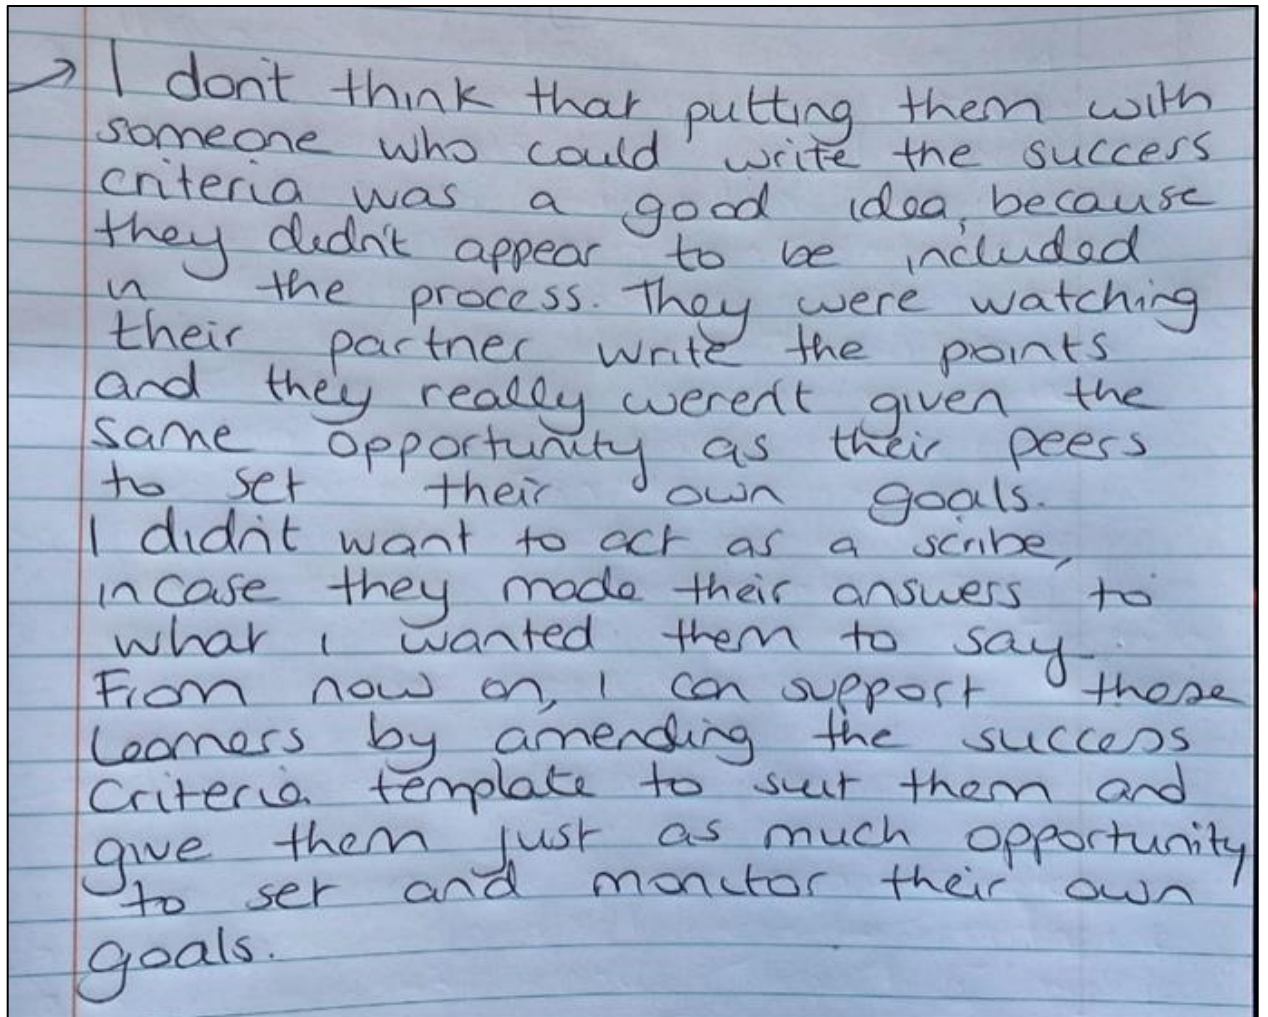 → I don't think that putting them with
someone who could write the success
criteria was a good idea, because
they didn't appear to be included
in the process. They were watching
their partner write the points
and they really weren't given the
same opportunity as their peers
to set their own goals.
I didn't want to act as a scribe,
incase they made their answers to
what I wanted them to say.
From now on, I can support these
learners by amending the success
Criteria template to suit them and
give them just as much opportunity
to set and monitor their own
goals.